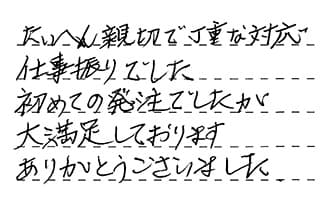 たいへん親切で丁重な対応
仕事振りでした
初めての発注でしたが
大満足しております
ありがとうございました